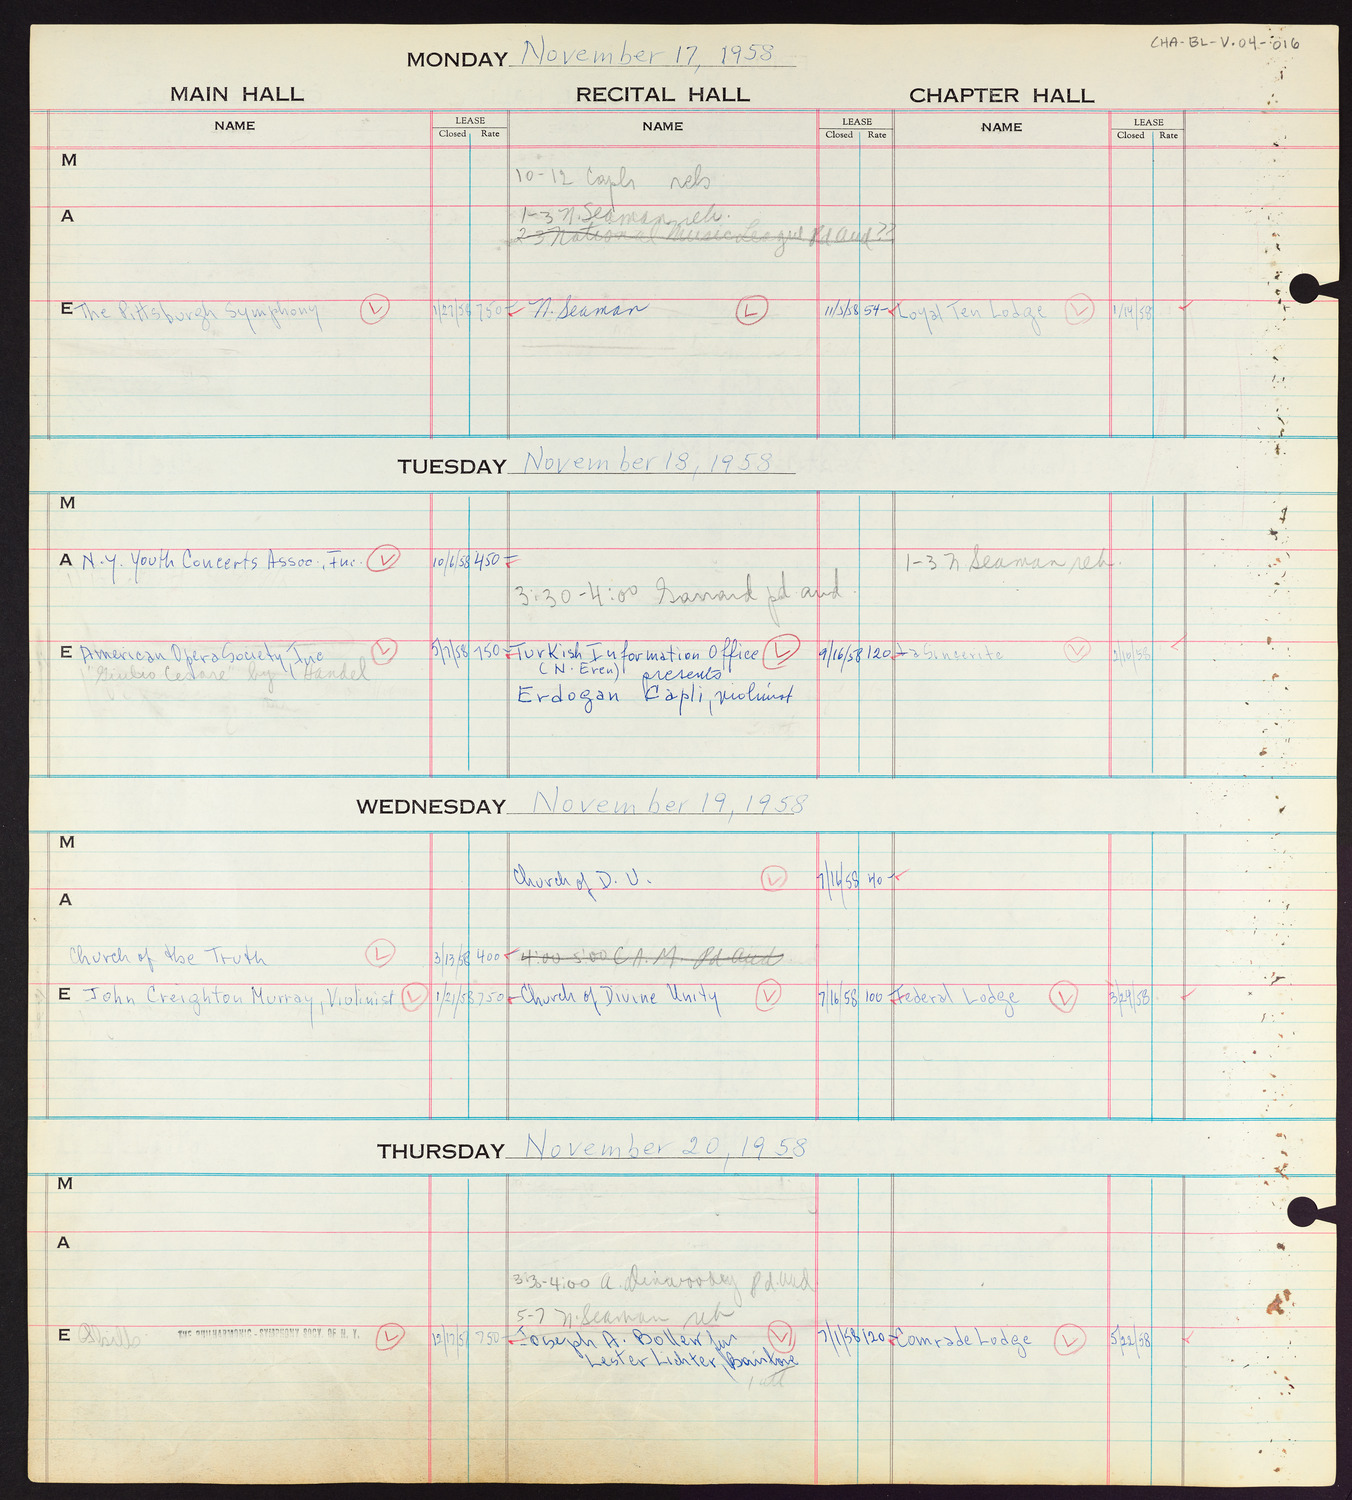 CHA-BL-V.04-016
MONDAY November 17, 1958
MAIN HALL RECITAL HALL CHAPTER HALL
NAME LEASE Closed Rate NAME LEASE Closed Rate NAME LEASE Closed Rate
M
10-12 Capli reh
A
1-3 N. Seaman reh.
2-3 National Music League Pd Aud??
E The Pittsburgh Symphony L 1/27/58 750 N. Seaman L 11/3/58 54 Loyal Ten Lodge L 1/14/58
TUESDAY November 18, 1958
M
A N.Y. Youth Concerts Assoc., Inc. L 10/6/58 450 1-3 N Seaman reh.
3:30-4:00 pd. aud.
E American Opera Society, Inc L 5/7/58 750 Turkish Information Office L 9/16/58 120 La Sincerite L 2/10/58
"Giulio Cesare" by Handel (N. Eren) presents
Erdogan Capli, violinist
WEDNESDAY November 19, 1958
M
Church of D. U. L 7/16/58 40
A
Church of the Truth L 3/13/58 400 4:00-5:00 C.A.M. Pd Aud.
E John Creighton Murray, Violinist L 1/21/58 750 Church of Divine Unity L 7/16/58 100 Federal Lodge L 3/24/58
THURSDAY November 20, 1958
M
A
3:30-4:00 A. Dinwoodey Pd. Aud
5-7 N. Seaman reh
E THE PHILHARMONIC-SYMPHONY SOCY. OF N. Y. L 12/17/57 750 Joseph A. Boller for L 7/1/58 120 Comrade Lodge L 5/22/58
Lester Lichter, Baritone